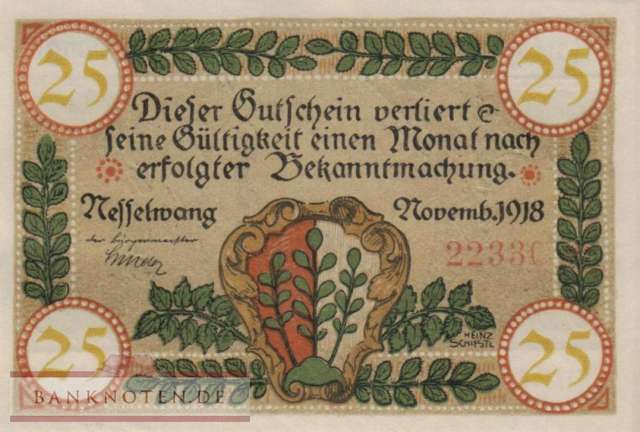 25 25
Dieser Gutschein verliert
seine Gültigkeit einen Monat nach
erfolgter Bekanntmachung.
Nesselwang Novemb. 1918
der Bürgermeister
2233
HEINZ
SCHIESTL
25 25
BANKNOTEN.DE